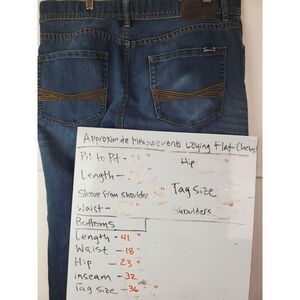 Approximate Measurements Laying Flat (Inches)
Pit to Pit - "
Hip "
Length - "
Sleeve from shoulder "
Tag Size
Waist - "
Shoulders
Bottoms
Length - 41 "
Waist - 18 "
Hip - 23 "
inseam - 32
Tag Size - 36 "